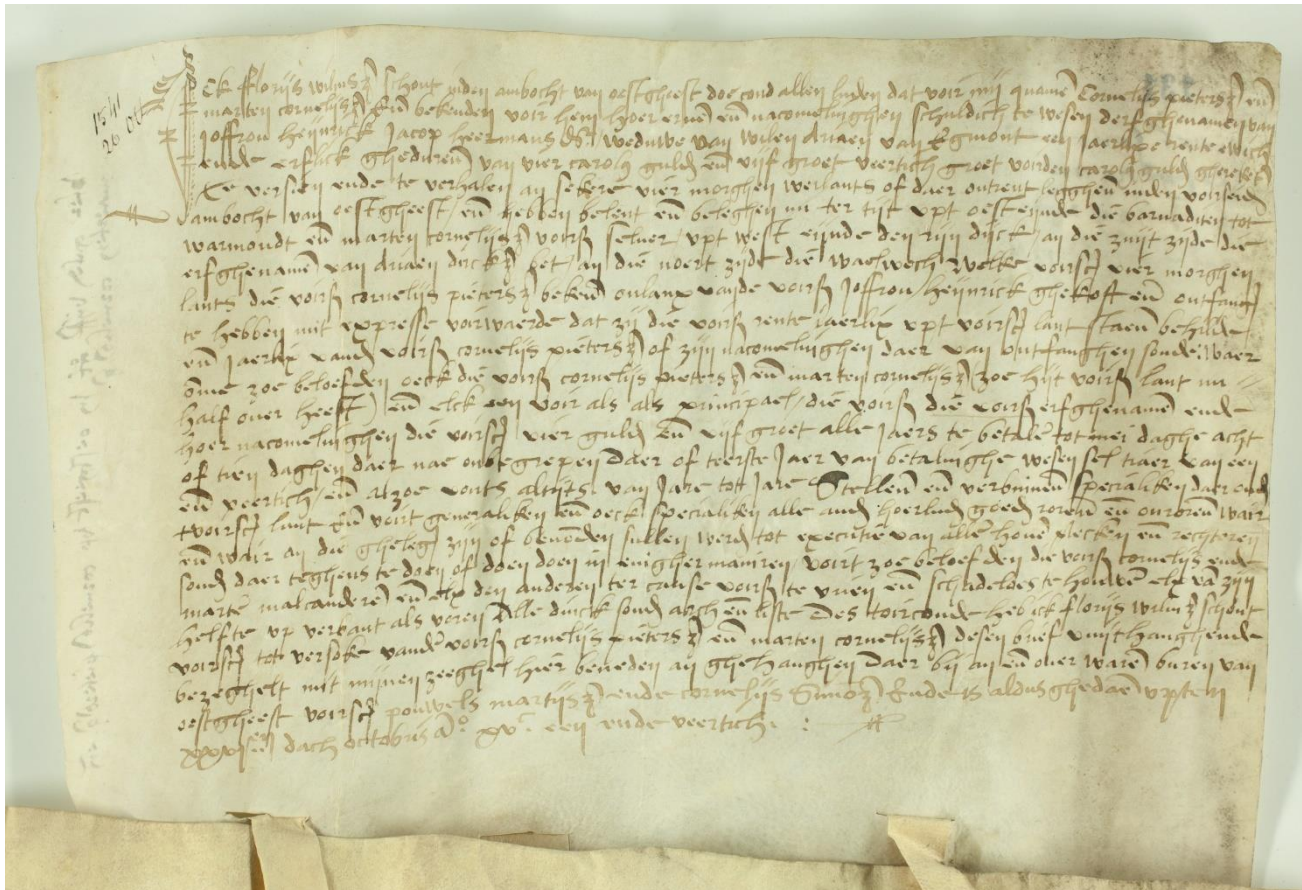 1541
26 Oct
Ick Florijs Wilmsz schout inden ambocht van oestgheest doe cond allen luden dat voir mij quamen Cornelijs pietersz eñ
marten cornelijsz Eñ bekenden voir hem hoer erven eñ nacomelinghen schuldich te wesen derfghenamen van
Joffrou heijnrick Jacop heermans dr weduwe van wilen Ariaen van Egmont een jaerlixe rente ewich
ende erflick ghedueren van vier carolus guld eñ vijf groet veertich groet voirden carolus guld gherekent
te versien ende te verhalen an sekere vier morghen weilants of daer ontrent legghen inden voirseiden
ambocht van oestgheest / eñ hebben belent eñ beleghen nu ter tijt upt oest eijnde die barnaditen tot
warmondt eñ marten cornelijsz voirs selver / upt west eijnde den rijn dijck / an die zuijt zijde die
erfghenamen van Ariaen dircksz / an die noert zijde die waelwegh Welke voirscr vier morghen
lants die voirs cornelijs pietersz bekent onlanx vande voirs Joffrou heijnrick ghekoft eñ ontfanghen
te hebben mit expresse voirwaerde dat zij die voirs rente jaerlix upt voirscr lant staen behilde
eñ jaerlix vanden voirs cornelijs pietersz of zijn nacomelinghen daer van ontfanghen soude / Waer
omme zoe beloefden oeck die voirs cornelijs pietersz eñ marten cornelijsz (zoe hijt voirs lant nu
half over heeft) eñ elck een voir als als principael / die voirs die voirs erfghenamen ende
hoer nacomelinghen die voirscr vier guld eñ vijf groet alle Jaers te betalen tot mei daghe acht
of tien daghen daer nae onbegrepen Daer of teerste Jaer van betalinghe wesen sel tjaer van een
eñ veertich / eñ alzoe voirts altijts van Jare tot Jare Stellen eñ verbinden specialiken daer onder
tvoirscr lant Eñ voirt generaliken eñ oeck specialiken alle ander hoerluder goed roerend eñ onroerend wair
eñ wair an die gheleghen zijn of bevonden sullen werden tot executie van allen hoven plecken eñ rechteren
sonder daer teghens te doen of doen doen in enigher manieren voirt zoe beloefden die voirs cornelijs ende
marten malcanderen eñ elx den anderen ter cause voirs te vrien eñ schadeloes te houwen elx van zijn
helfte up verbant als voren Alle dinck sonder arch eñ liste Des toirconde heb ick florijs wilmsz schout
voirscr tot versoke vanden voirs cornelijs pietersz eñ marten cornelijsz desen brief uuijthanghende
bezeghelt mit mijnen zeeghel hier beneden an ghehanghen Daer bij an eñ over waren buren van
oestgheest voirscr pouwels martijsz ende cornelijs Simonsz Ende is aldus ghedaen upten
xxvisten dach octobris a° xvc een ende veertich